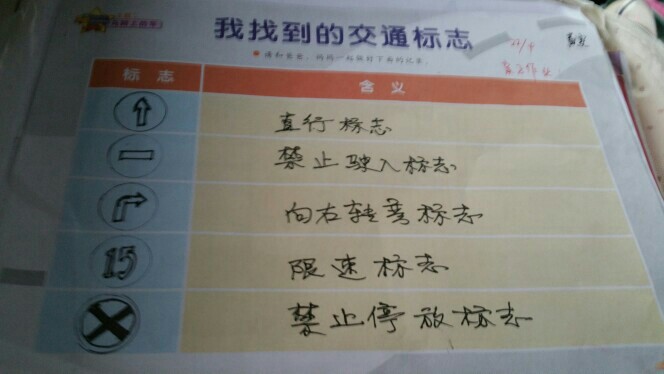 我找到的交通标志
标志
含义
直行标志
禁止驶入标志
向右转弯标志
15
限速标志
禁止停放标志